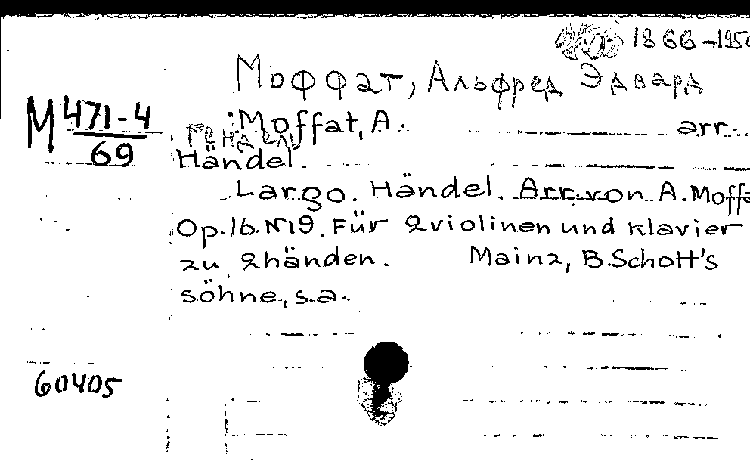 1866-195
Моффат, Альфред Эдвард
М 471-4
69
Moffat, A. arr.
Händel.
Largo. Händel. Arr. von A. Moffa
Op. 16. N19. Für 2 violinen und klavier
zu 2 händen. Mainz, B. Schott's
söhne, s.a.
60405